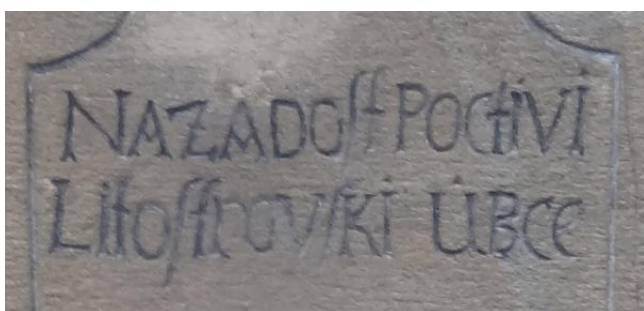 NAZADOſt POCtiVi
LitoſtROVſKi ÚBCE